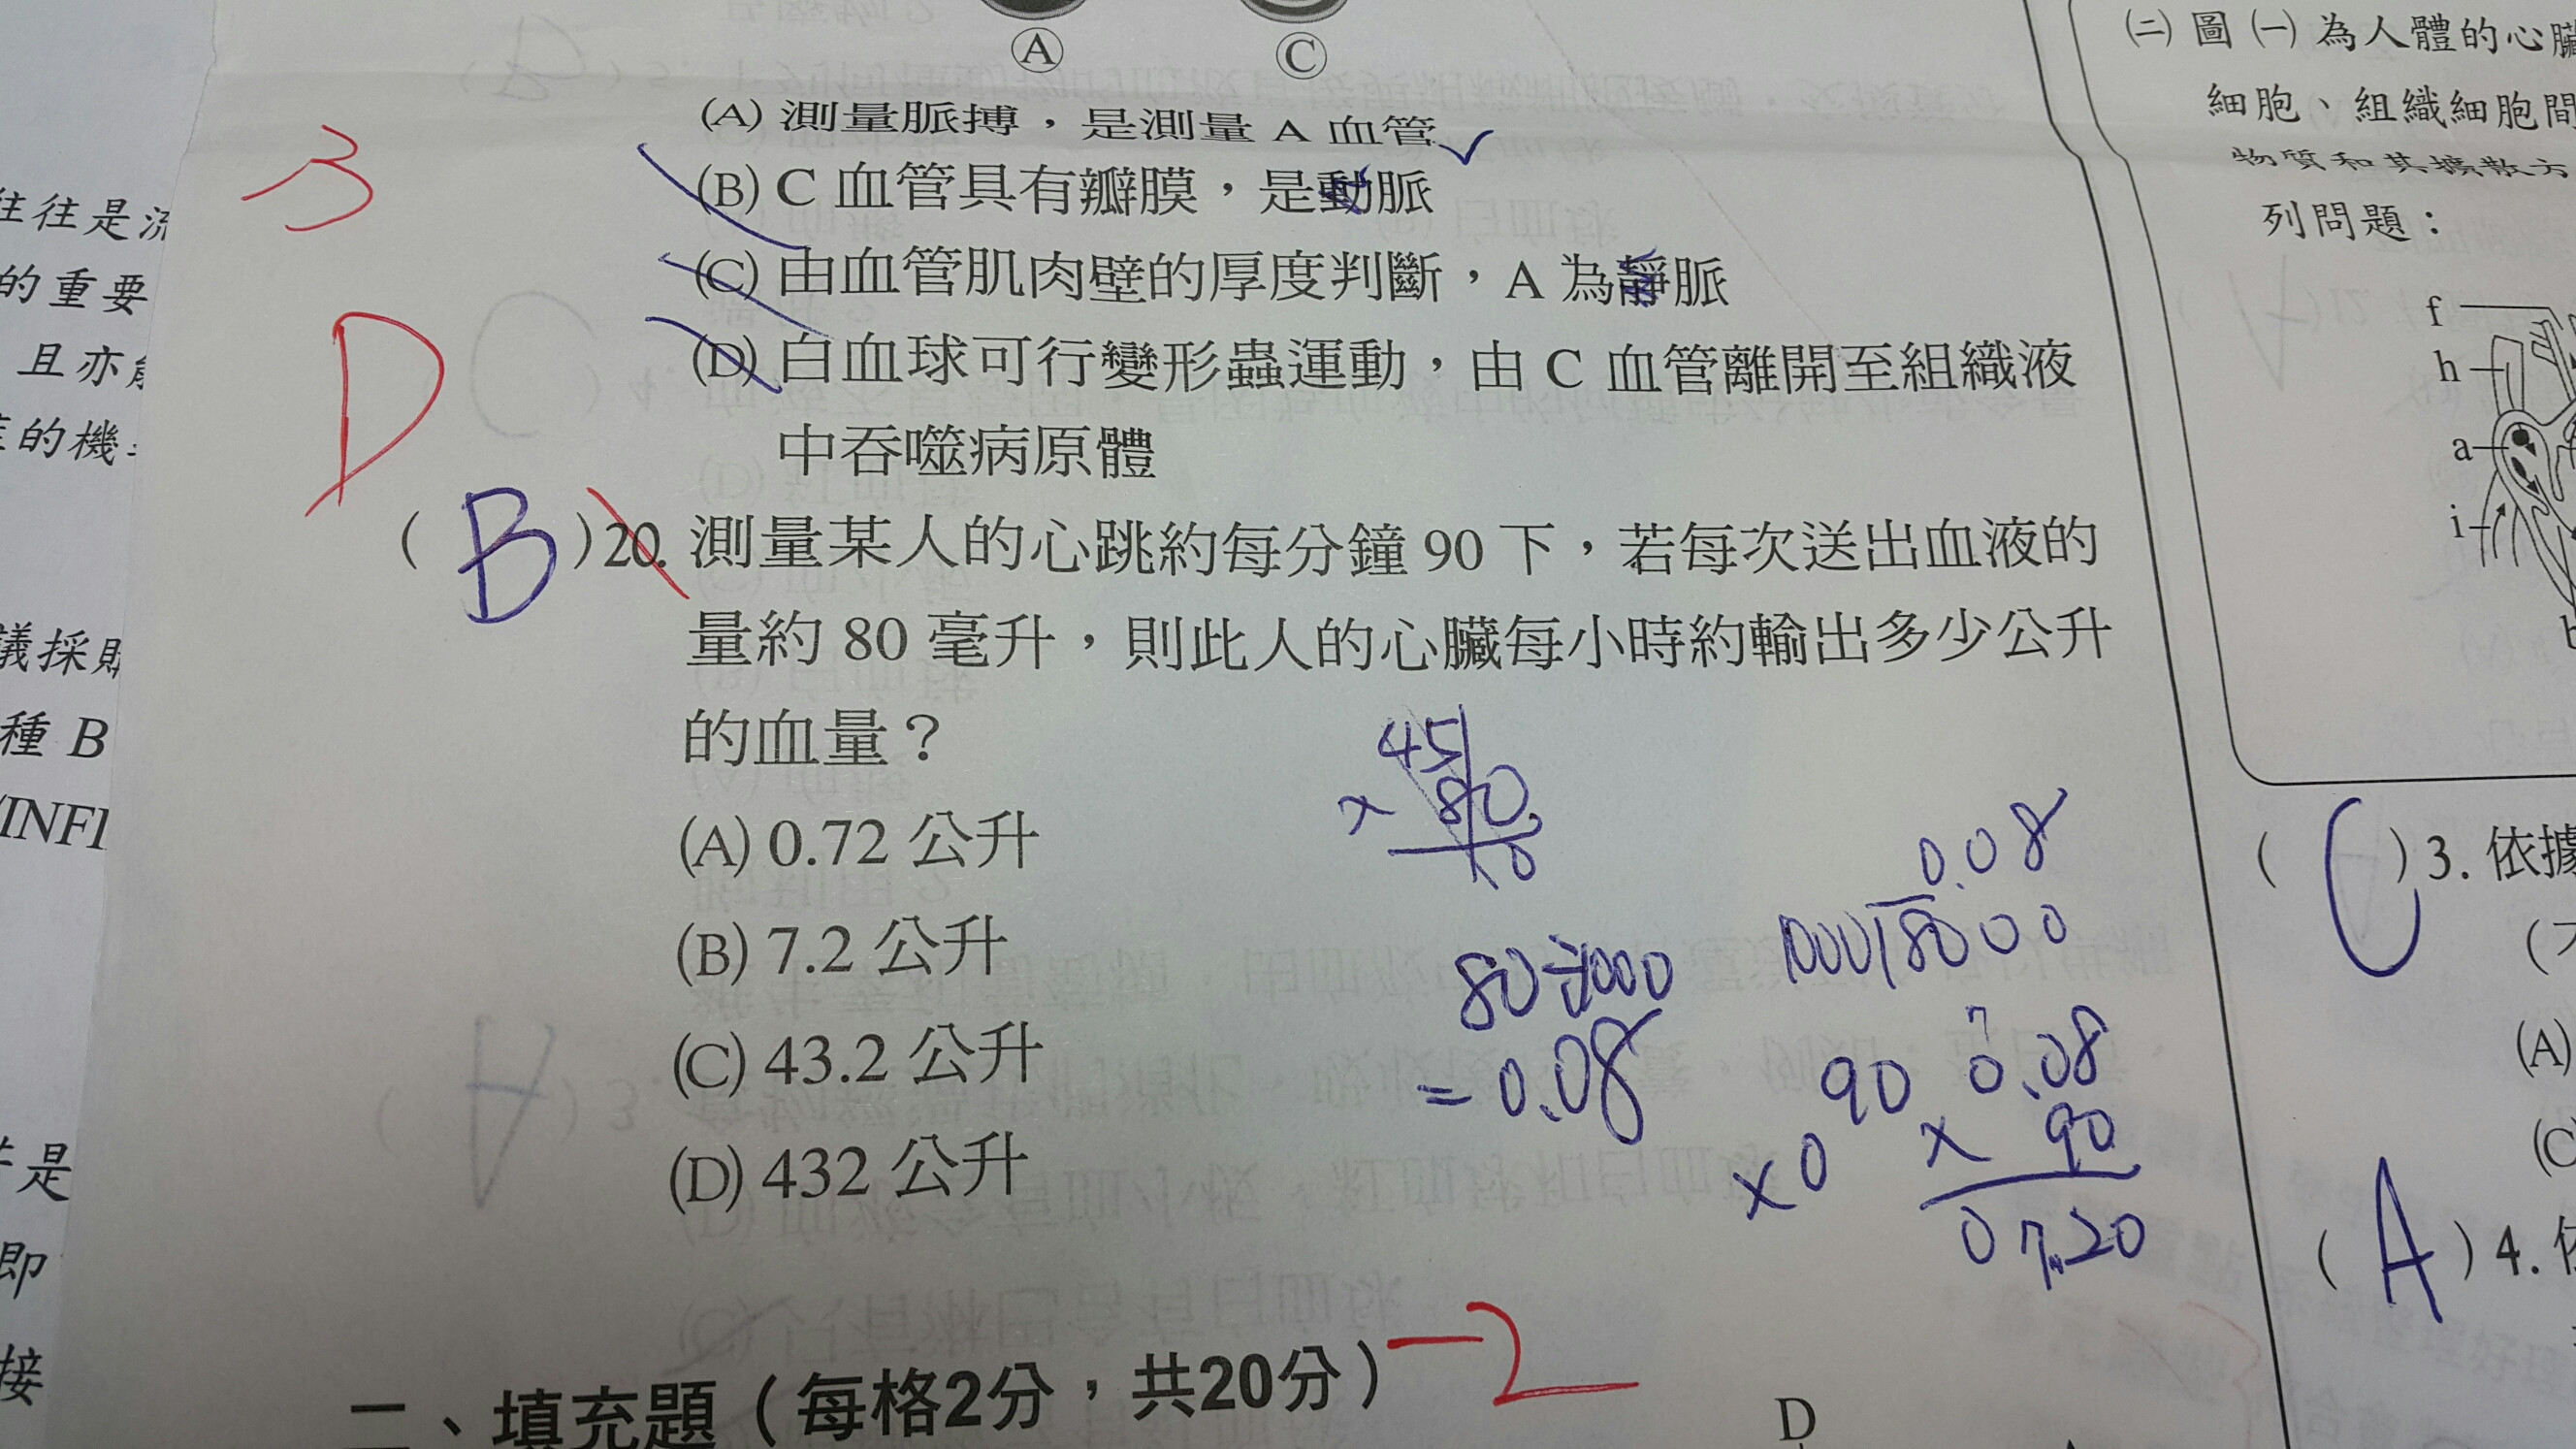 Ⓐ Ⓒ
(A) 測量脈搏，是測量 A 血管 ✓
(B) C 血管具有瓣膜，是動脈
(C) 由血管肌肉壁的厚度判斷，A 為靜脈
(D) 白血球可行變形蟲運動，由 C 血管離開至組織液
中吞噬病原體
D
( B )20. 測量某人的心跳約每分鐘 90 下，若每次送出血液的
量約 80 毫升，則此人的心臟每小時約輸出多少公升
的血量？
(A) 0.72 公升
(B) 7.2 公升
(C) 43.2 公升
(D) 432 公升
45
× 80
0
80÷1000
= 0.08
0.08
90
×0
0.08
× 90
07.20
二、填充題（每格2分，共20分）-2
D
往往是流
的重要
且亦
的機
議採
種 B
是
即
接
㈡ 圖 ㈠ 為人體的心臟
細胞、組織細胞間
物質和其擴散方
列問題：
f
h
a
i
( C )3. 依據
(A)
( A )4.